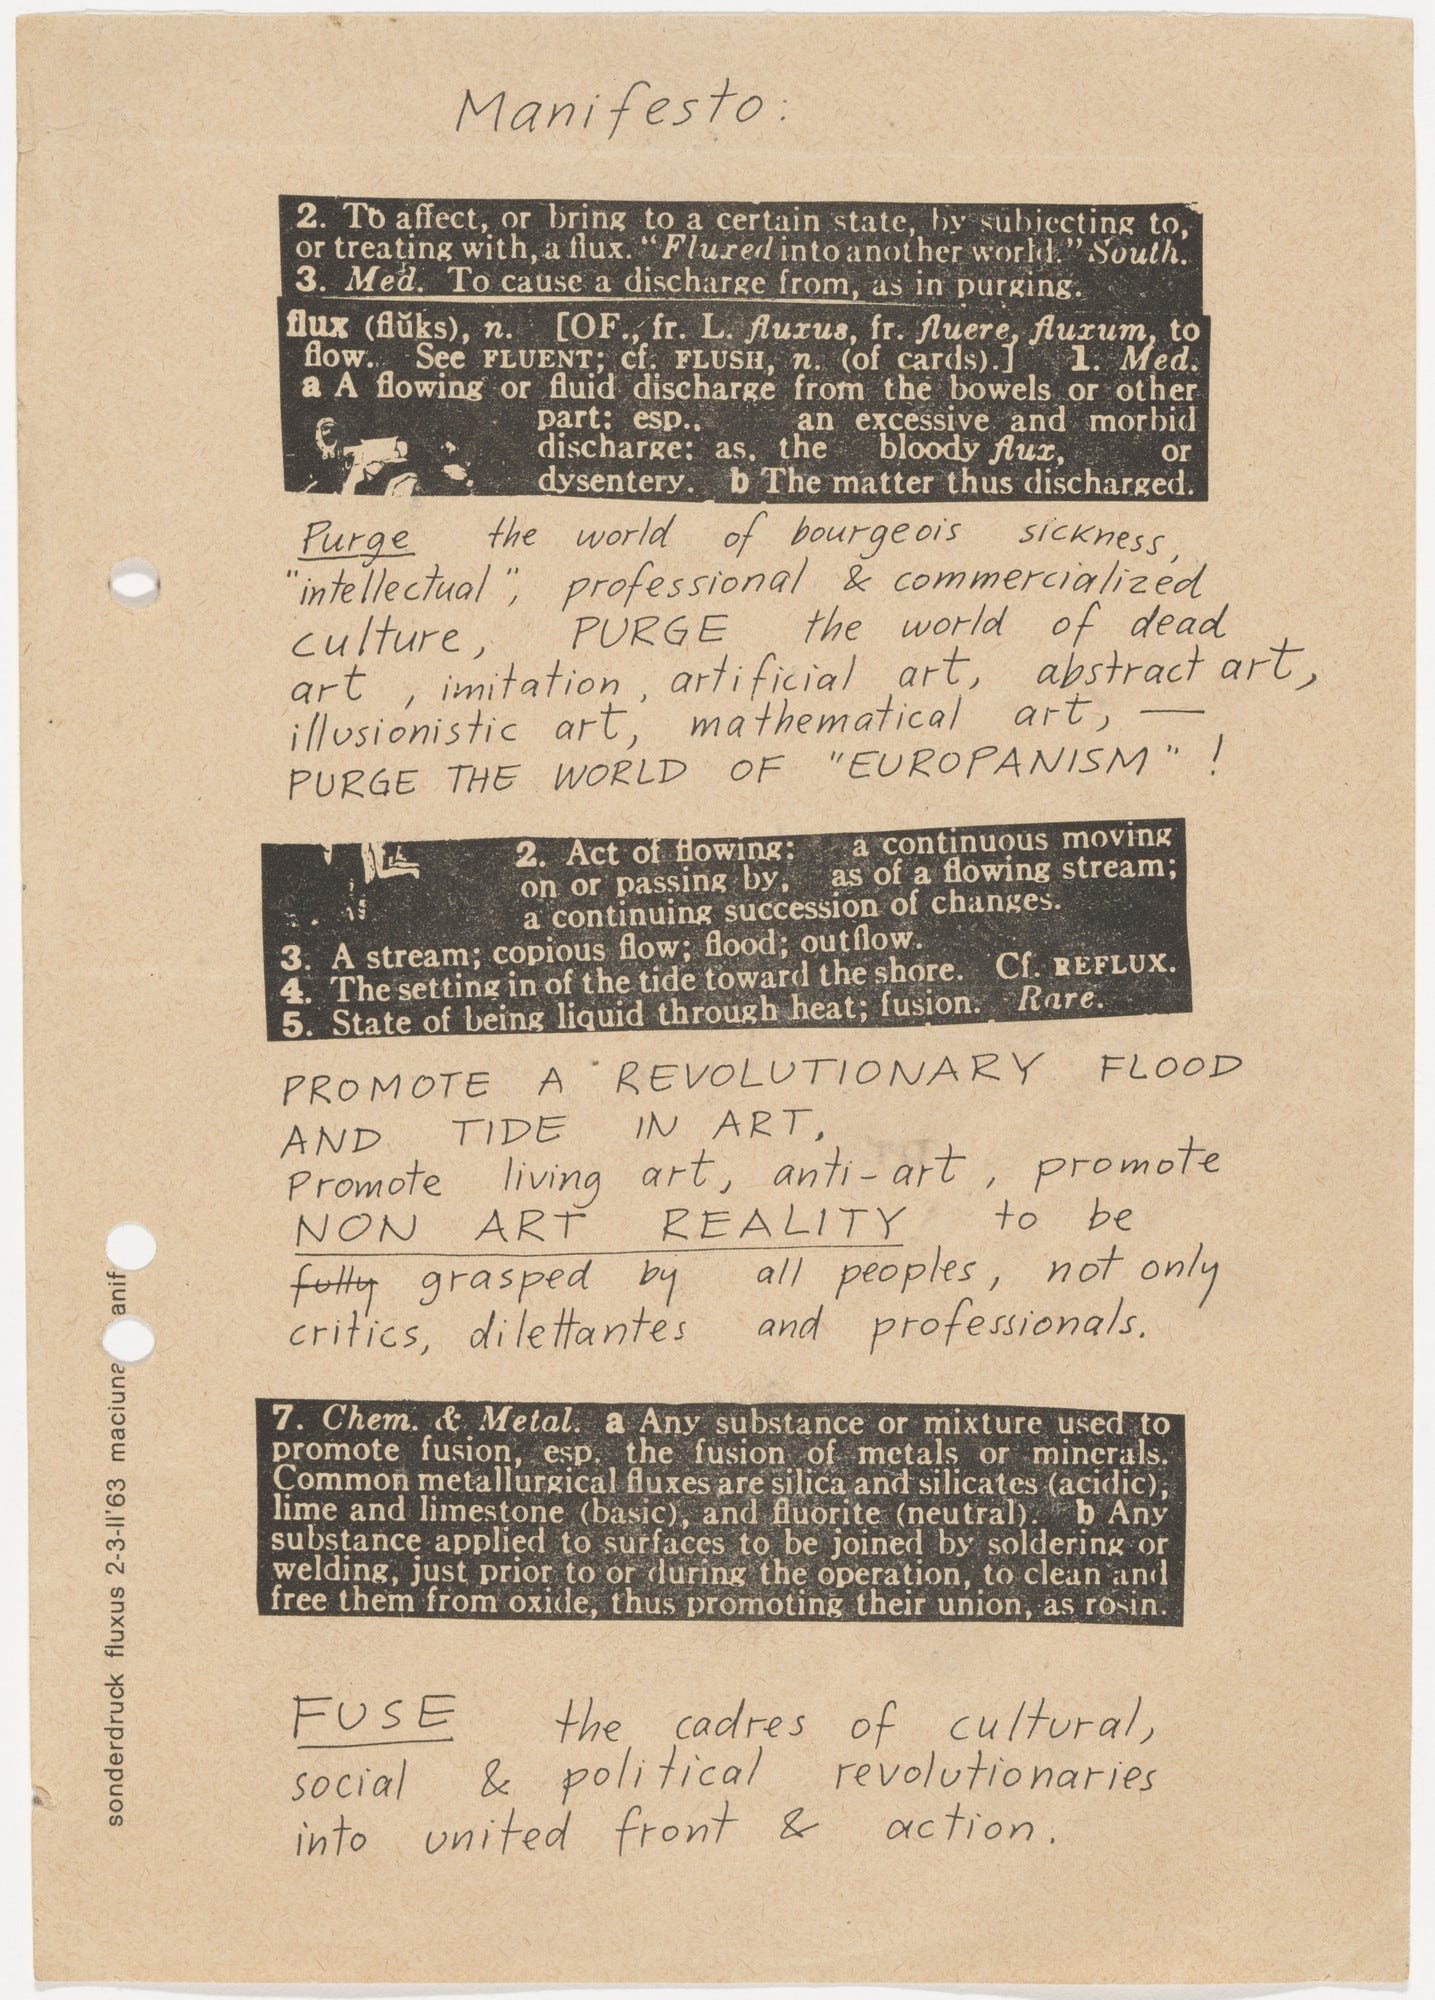 Manifesto:
2. To affect, or bring to a certain state, by subjecting to,
or treating with, a flux. "Fluxed into another world." South.
3. Med. To cause a discharge from, as in purging.
flux (flŭks), n. [OF., fr. L. fluxus, fr. fluere, fluxum, to
flow. See FLUENT; cf. FLUSH, n. (of cards).] 1. Med.
a A flowing or fluid discharge from the bowels or other
part: esp., an excessive and morbid
discharge: as, the bloody flux, or
dysentery. b The matter thus discharged.
Purge the world of bourgeois sickness,
"intellectual", professional & commercialized
culture, PURGE the world of dead
art, imitation, artificial art, abstract art,
illusionistic art, mathematical art, —
PURGE THE WORLD OF "EUROPANISM"!
2. Act of flowing: a continuous moving
on or passing by, as of a flowing stream;
a continuing succession of changes.
3. A stream; copious flow; flood; outflow.
4. The setting in of the tide toward the shore. Cf. REFLUX.
5. State of being liquid through heat; fusion. Rare.
PROMOTE A REVOLUTIONARY FLOOD
AND TIDE IN ART,
Promote living art, anti-art, promote
NON ART REALITY to be
fully grasped by all peoples, not only
critics, dilettantes and professionals.
7. Chem. & Metal. a Any substance or mixture used to
promote fusion, esp. the fusion of metals or minerals.
Common metallurgical fluxes are silica and silicates (acidic),
lime and limestone (basic), and fluorite (neutral). b Any
substance applied to surfaces to be joined by soldering or
welding, just prior to or during the operation, to clean and
free them from oxide, thus promoting their union, as rosin.
FUSE the cadres of cultural,
social & political revolutionaries
into united front & action.
sonderdruck fluxus 2-3-II'63 maciuna anif